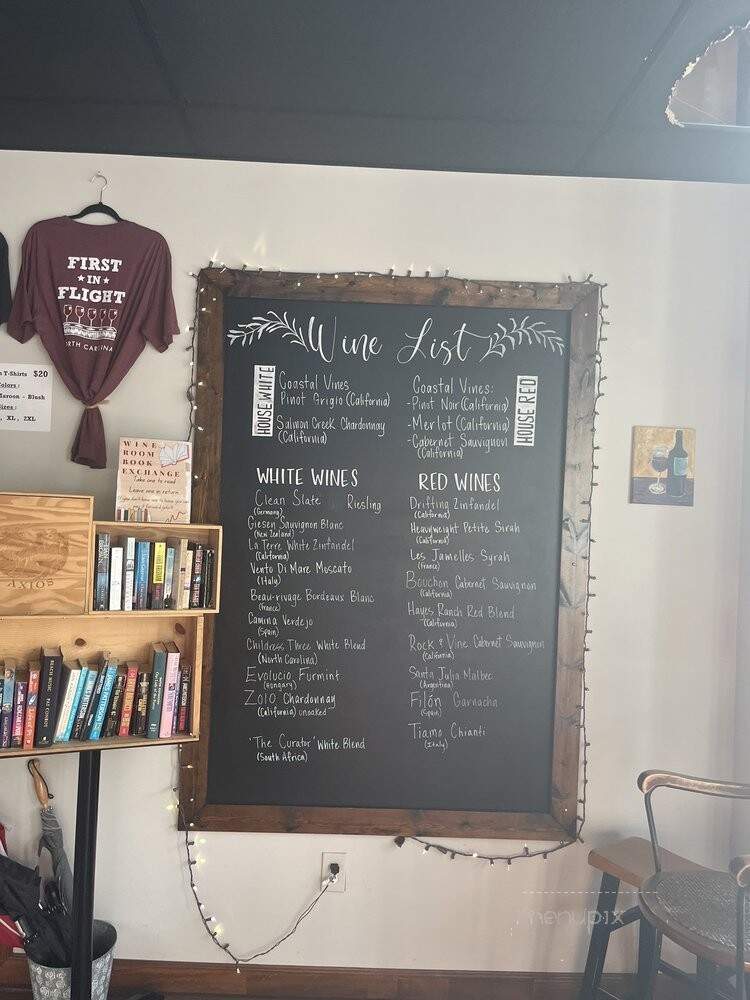 FIRST
IN
FLIGHT
NORTH CAROLINA
T-Shirts $20
Colors:
Maroon - Blush
Sizes:
, XL, 2XL
WINE
ROOM
BOOK
EXCHANGE
Take one to read
Leave one in return
Wine List
HOUSE WHITE
Coastal Vines
Pinot Grigio (California)
Salmon Creek Chardonnay
(California)
WHITE WINES
Clean Slate Riesling
(Germany)
Giesen Sauvignon Blanc
(New Zealand)
La Terre White Zinfandel
(California)
Vento Di Mare Moscato
(Italy)
Beau-rivage Bordeaux Blanc
(France)
Camina Verdejo
(Spain)
Childress Three White Blend
(North Carolina)
Evolucio Furmint
(Hungary)
Zolo Chardonnay
(California) unoaked
"The Curator" White Blend
(South Africa)
Coastal Vines:
-Pinot Noir (California)
-Merlot (California)
-Cabernet Sauvignon
(California)
HOUSE RED
RED WINES
Drifting Zinfandel
(California)
Heavyweight Petite Sirah
(California)
Les Jamelles Syrah
(France)
Bouchon Cabernet Sauvignon
(California)
Hayes Ranch Red Blend
(California)
Rock & Vine Cabernet Sauvignon
(California)
Santa Julia Malbec
(Argentina)
Filón Garnacha
(Spain)
Tiamo Chianti
(Italy)
AXIOS
menupix